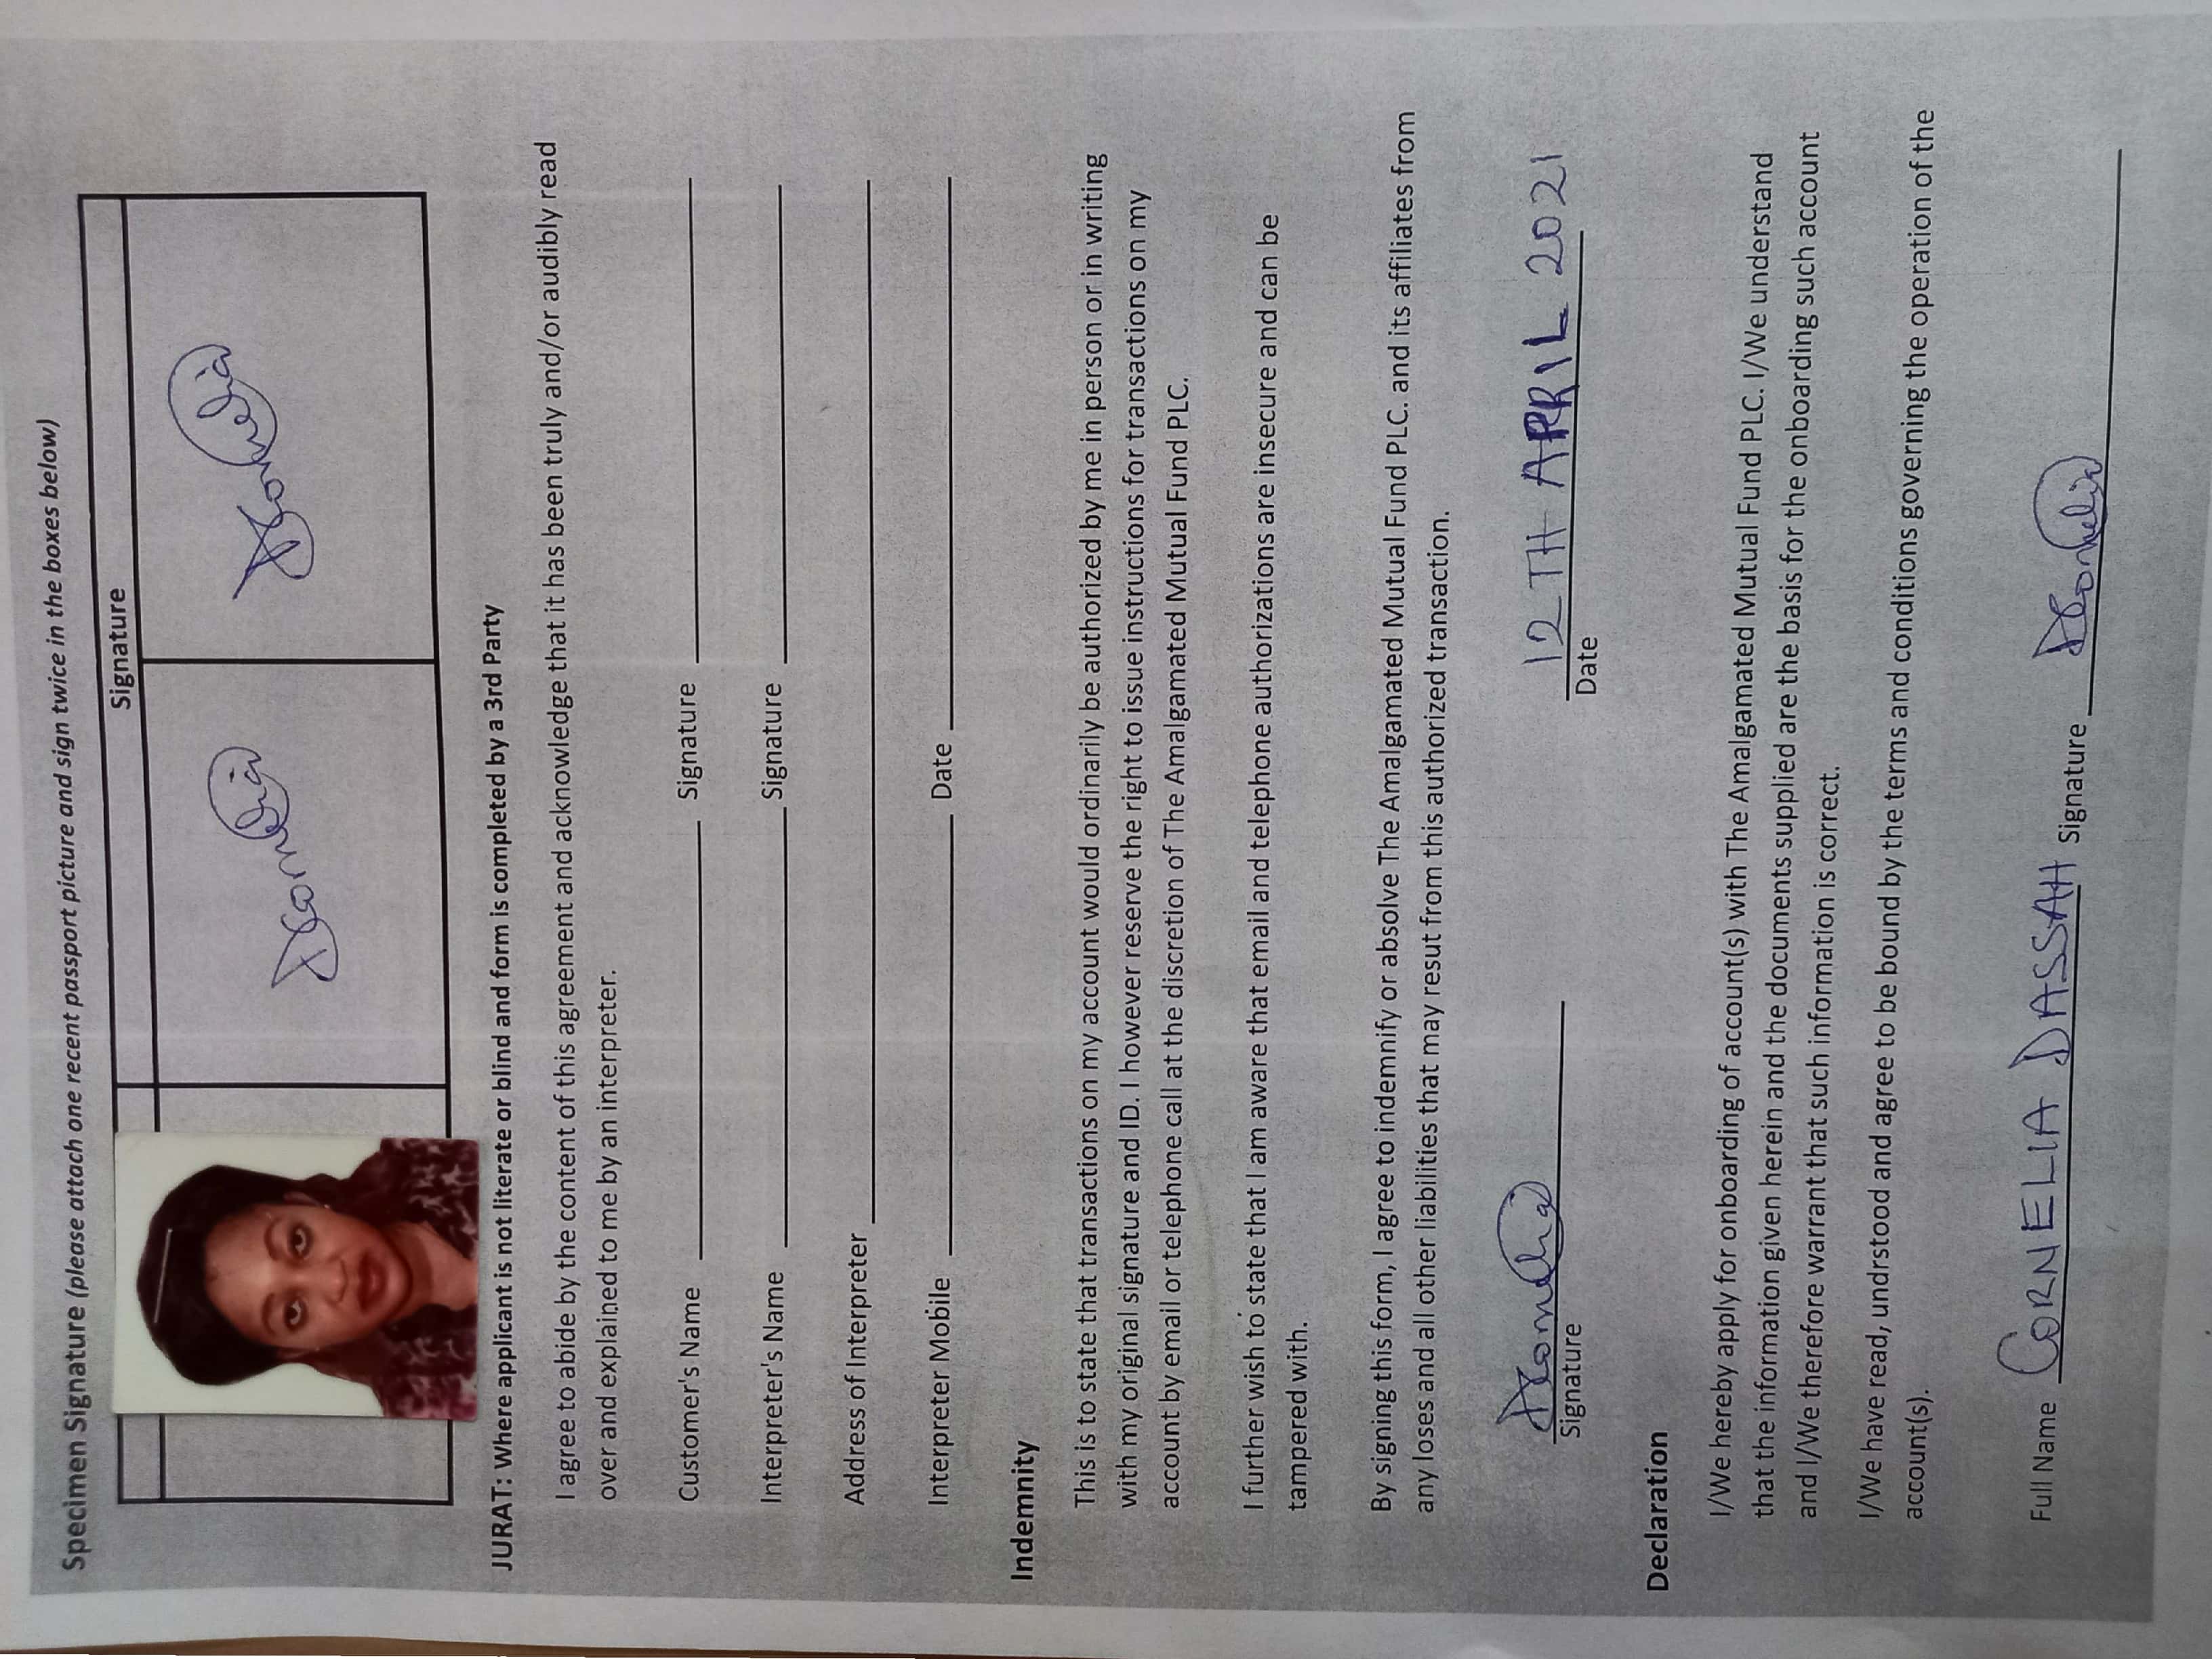 Specimen Signature (please attach one recent passport picture and sign twice in the boxes below)
Signature
DCornelia DCornelia
JURAT: Where applicant is not literate or blind and form is completed by a 3rd Party
I agree to abide by the content of this agreement and acknowledge that it has been truly and/or audibly read
over and explained to me by an interpreter.
Customer's Name Signature
Interpreter's Name Signature
Address of Interpreter
Interpreter Mobile Date
Indemnity
This is to state that transactions on my account would ordinarily be authorized by me in person or in writing
with my original signature and ID. I however reserve the right to issue instructions for transactions on my
account by email or telephone call at the discretion of The Amalgamated Mutual Fund PLC.
I further wish to state that I am aware that email and telephone authorizations are insecure and can be
tampered with.
By signing this form, I agree to indemnify or absolve The Amalgamated Mutual Fund PLC. and its affiliates from
any loses and all other liabilities that may resut from this authorized transaction.
DCornelia 12TH APRIL 2021
Signature Date
Declaration
I/We hereby apply for onboarding of account(s) with The Amalgamated Mutual Fund PLC. I/We understand
that the information given herein and the documents supplied are the basis for the onboarding such account
and I/We therefore warrant that such information is correct.
I/We have read, undrstood and agree to be bound by the terms and conditions governing the operation of the
account(s).
Full Name CORNELIA DASSAH Signature DCornelia